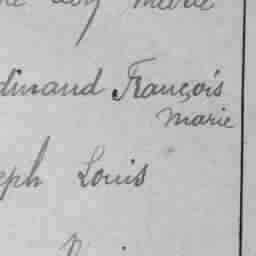 Marie
dinand François
Marie
eph Louis